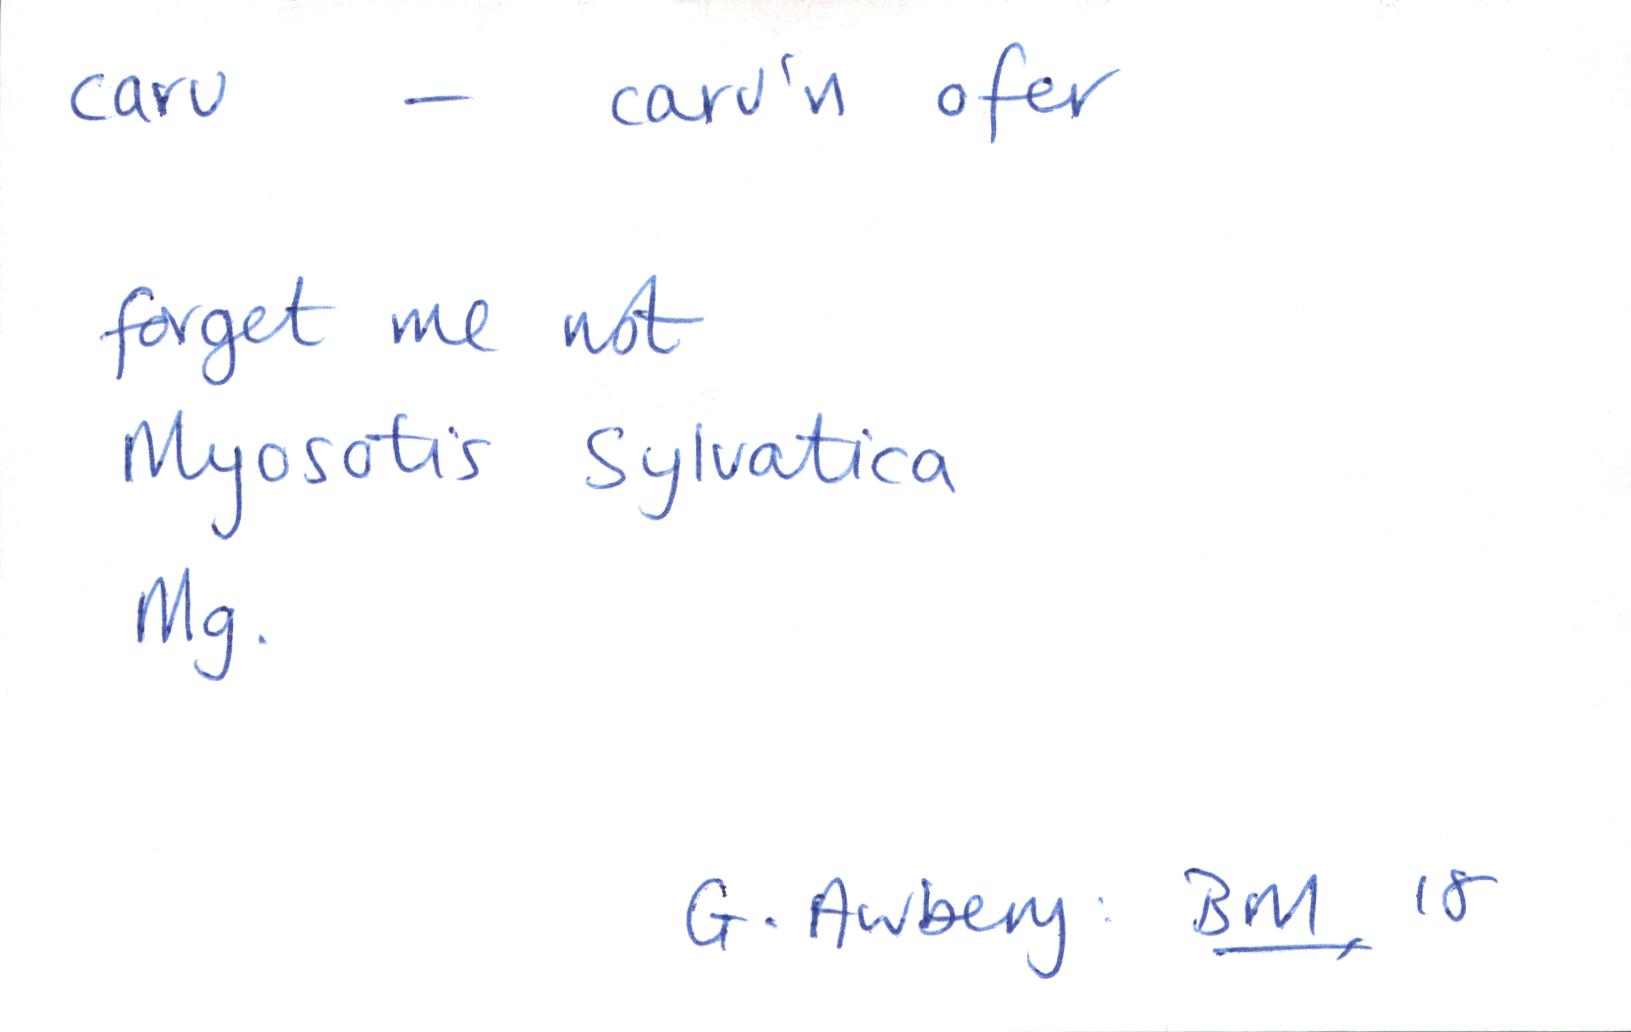 caru – caru'n ofer
forget me not
Myosotis Sylvatica
Mg.
G. Awbery: BM, 18